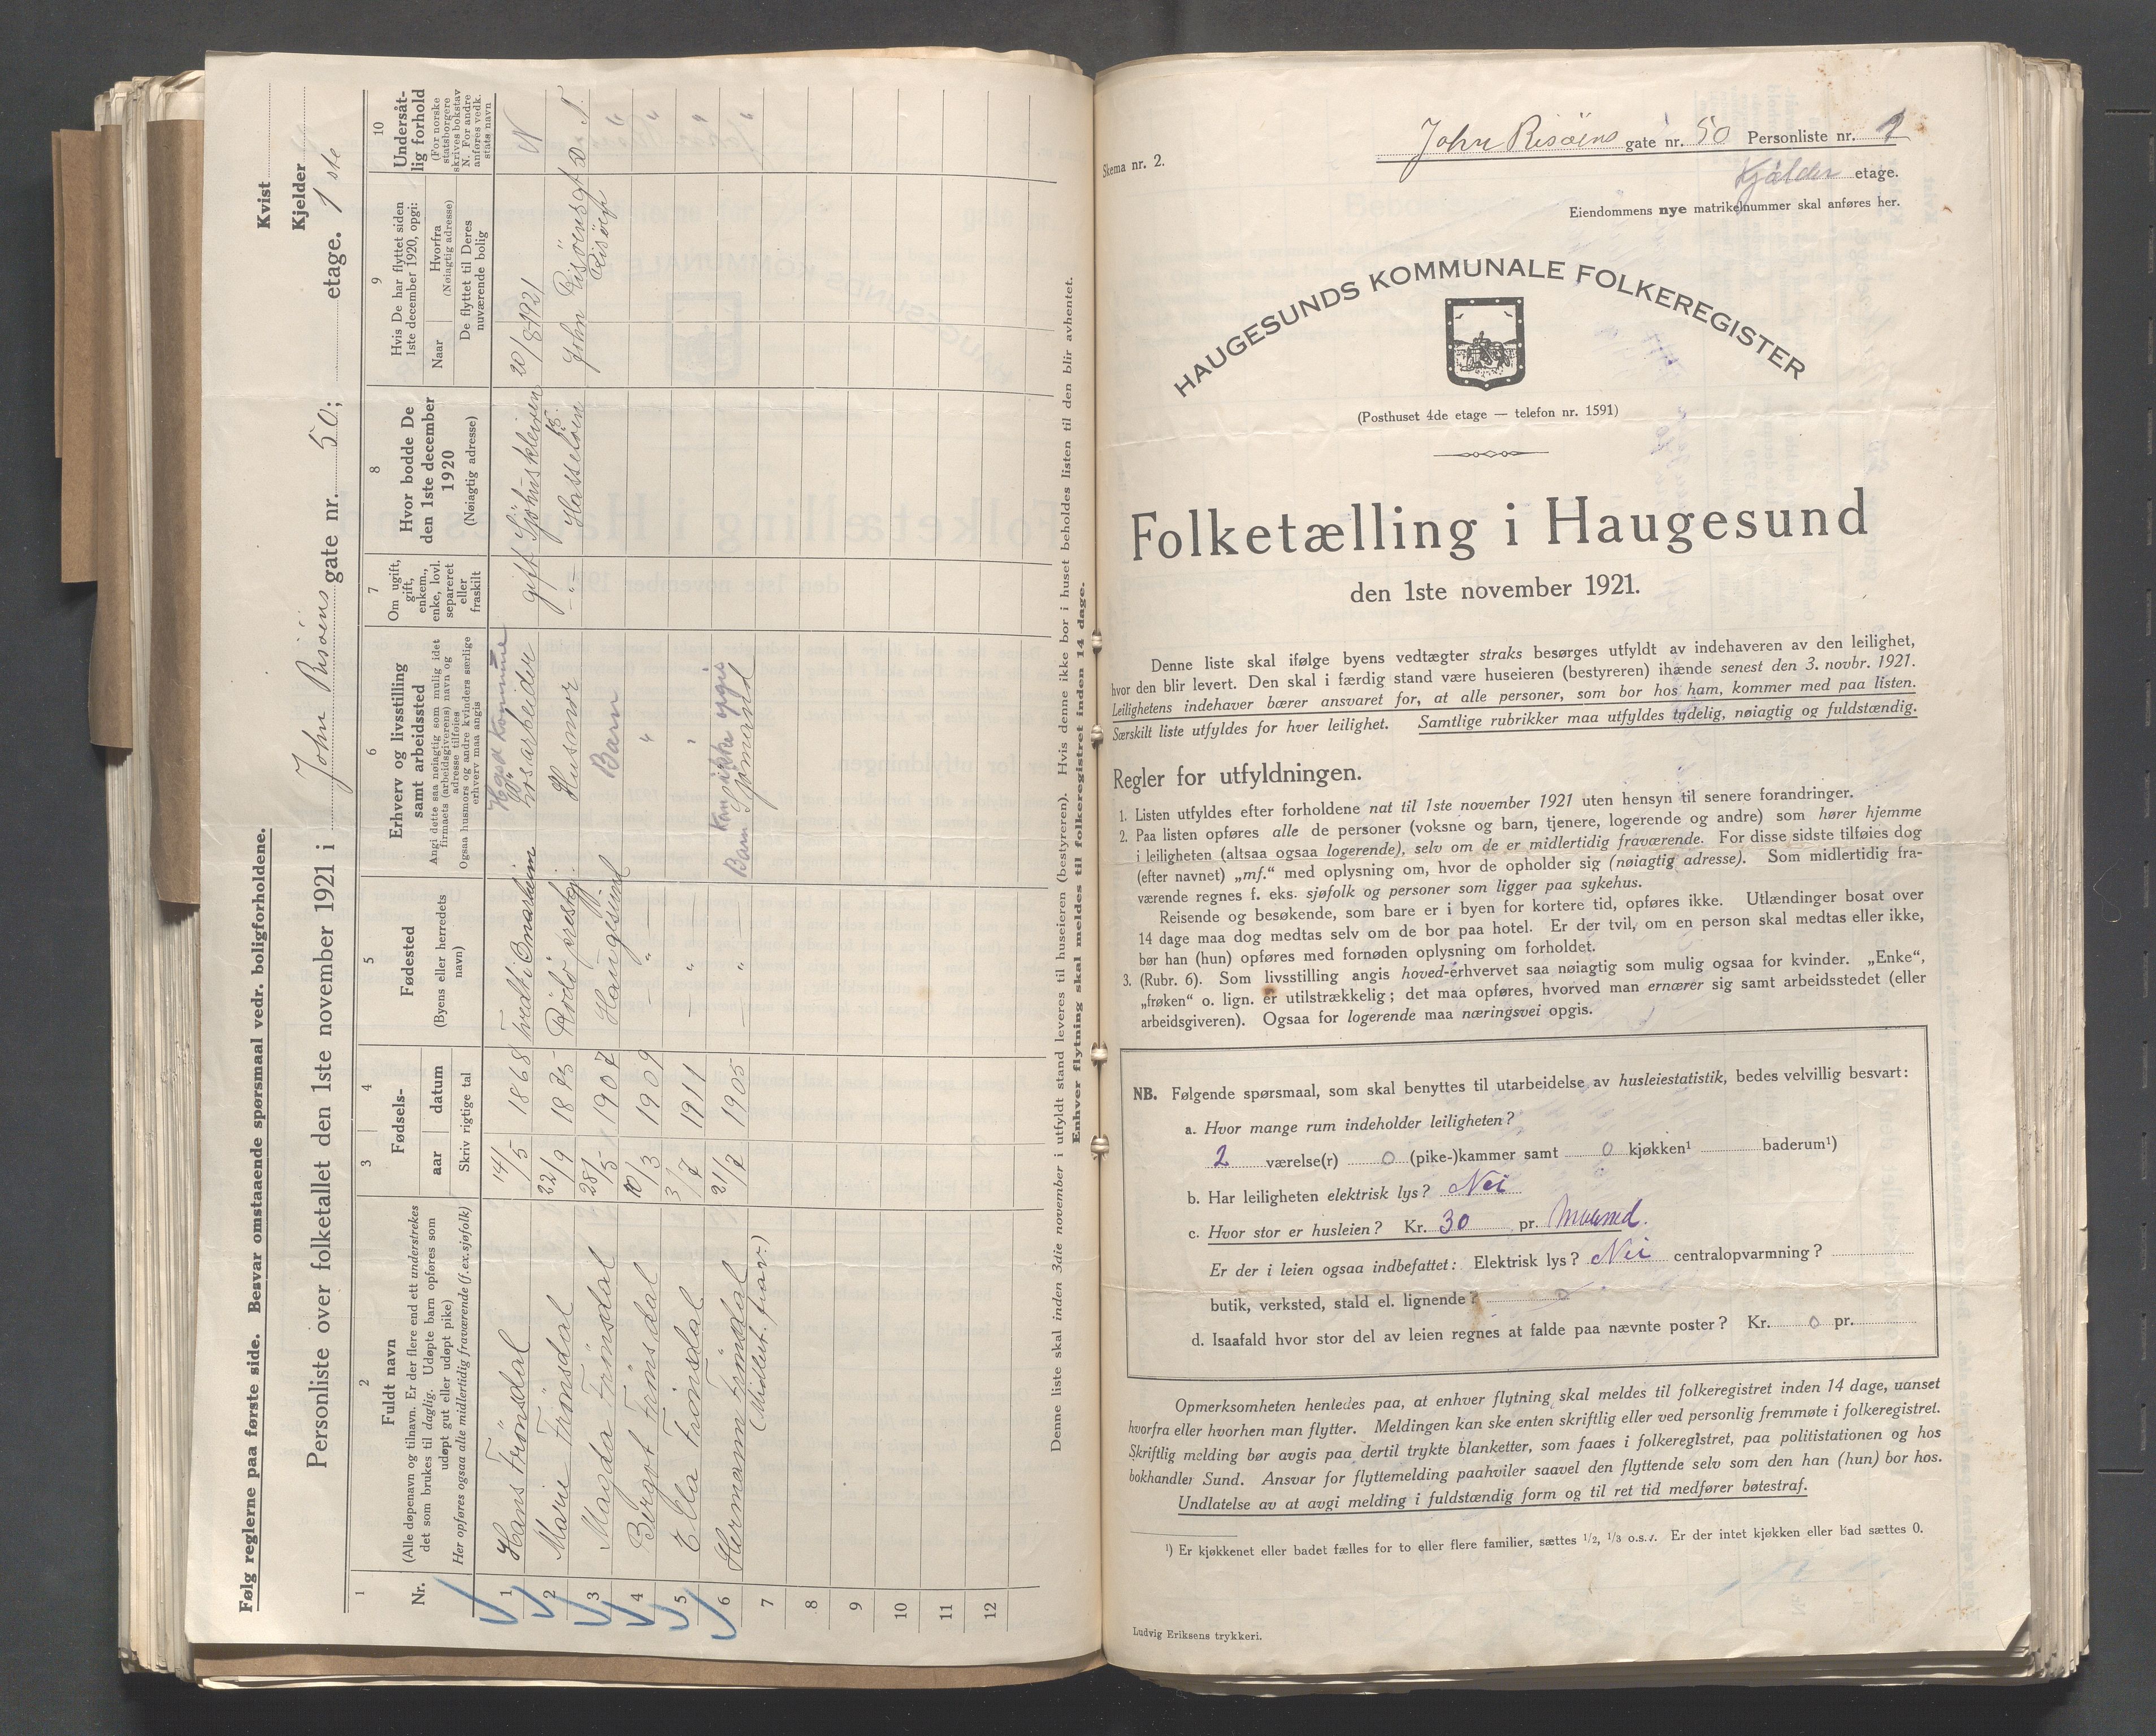 Følg reglerne paa første side. Besvar omstaaende spørsmaal vedr. boligforholdene.
Kvist
Kjelder
Personliste over folketallet den 1ste november 1921 i John Risøens gate nr. 50; etage. 1 ste
1
2
3
4
5
6
7
8
9
10
Nr.
Fuldt navn
(Alle døpenavn og tilnavn. Er der flere end ett understrekes
det som brukes til daglig. Udøpte barn opføres som
udøpt gut eller udøpt pike)
Her opføres ogsaa alle midlertidig fraværende (f.ex. sjøfolk)
Fødsels-
aar
datum
Skriv rigtige tal
Fødested
(Byens eller herredets
navn)
Erhverv og livsstilling
samt arbeidssted
Angi dette saa nøiagtig som mulig idet
firmaets (arbeidsgiverens) navn og
adresse tilføies
Ogsaa husmors og andre kvinders særlige
erhverv maa angis
Om ugift,
gift,
enkem.,
enke, lovl.
separeret
eller
fraskilt
Hvor bodde De
den 1ste december
1920
(Nøiagtig adresse)
Hvis De har flyttet siden
1ste december 1920, opgi:
Naar
Hvorfra
(Nøiagtig adresse)
De flyttet til Deres
nuværende bolig
Undersåt-
lig forhold
(For norske
statsborgere
skrives bokstav
N. For andre
anføres vedk.
stats navn
Hgsd Kommune
1 Hans Trönsdal 14/5 1868 Lösarbeider gift Sjöhuskleiven 20/8-1921 N
2 Marie Trönsdal 22/9 1875 Husmor -"- Hasseløen John Risöensgt
3 Magda Trönsdal 28/5 1907 Haugesund Barn Risöen "
4 Birgot Trönsdal 10/3 1909 — " — " "
5 Ella Trönsdal 3/7 1911 — " — " "
Kan ikke opgis
6 Hermann Trönsdal 21/7 1905 — " — Barn Sjömand "
(Midlert. frav.)
7
8
9
10
11
12
Denne liste skal inden 3die november i utfyldt stand leveres til huseieren (bestyreren). Hvis denne ikke bor i huset beholdes listen til den blir avhentet.
Enhver flytning skal meldes til folkeregistret inden 14 dage.
Skema nr. 2.
John Risøens gate nr. 50 Personliste nr. 1
Kjælder etage.
Eiendommens nye matrikelnummer skal anføres her.
HAUGESUNDS KOMMUNALE FOLKEREGISTER
(Posthuset 4de etage — telefon nr. 1591)
Folketælling i Haugesund
den 1ste november 1921.
Denne liste skal ifølge byens vedtægter straks besørges utfyldt av indehaveren av den leilighet,
hvor den blir levert. Den skal i færdig stand være huseieren (bestyreren) ihænde senest den 3. novbr. 1921.
Leilighetens indehaver bærer ansvaret for, at alle personer, som bor hos ham, kommer med paa listen.
Særskilt liste utfyldes for hver leilighet. Samtlige rubrikker maa utfyldes tydelig, nøiagtig og fuldstændig.
Regler for utfyldningen.
1. Listen utfyldes efter forholdene nat til 1ste november 1921 uten hensyn til senere forandringer.
2. Paa listen opføres alle de personer (voksne og barn, tjenere, logerende og andre) som hører hjemme
i leiligheten (altsaa ogsaa logerende), selv om de er midlertidig fraværende. For disse sidste tilføies dog
(efter navnet) „mf.“ med oplysning om, hvor de opholder sig (nøiagtig adresse). Som midlertidig fra-
værende regnes f. eks. sjøfolk og personer som ligger paa sykehus.
Reisende og besøkende, som bare er i byen for kortere tid, opføres ikke. Utlændinger bosat over
14 dage maa dog medtas selv om de bor paa hotel. Er der tvil, om en person skal medtas eller ikke,
bør han (hun) opføres med fornøden oplysning om forholdet.
3. (Rubr. 6). Som livsstilling angis hoved-erhvervet saa nøiagtig som mulig ogsaa for kvinder. „Enke“,
„frøken“ o. lign. er utilstrækkelig; det maa opføres, hvorved man ernærer sig samt arbeidsstedet (eller
arbeidsgiveren). Ogsaa for logerende maa næringsvei opgis.
NB. Følgende spørsmaal, som skal benyttes til utarbeidelse av husleiestatistik, bedes velvillig besvart:
a. Hvor mange rum indeholder leiligheten?
2 værelse(r) 0 (pike-)kammer samt 0 kjøkken¹ baderum¹)
b. Har leiligheten elektrisk lys? Nei
c. Hvor stor er husleien? Kr. 30 pr. Maaned.
Er der i leien ogsaa indbefattet: Elektrisk lys? Nei centralopvarmning?
butik, verksted, stald el. lignende?
d. Isaafald hvor stor del av leien regnes at falde paa nævnte poster? Kr. 0 pr.
Opmerksomheten henledes paa, at enhver flytning skal meldes til folkeregistret inden 14 dage, uanset
hvorfra eller hvorhen man flytter. Meldingen kan ske enten skriftlig eller ved personlig fremmøte i folkeregistret.
Skriftlig melding bør avgis paa dertil trykte blanketter, som faaes i folkeregistret, paa politistationen og hos
bokhandler Sund. Ansvar for flyttemelding paahviler saavel den flyttende selv som den han (hun) bor hos.
Undlatelse av at avgi melding i fuldstændig form og til ret tid medfører bøtestraf.
¹) Er kjøkkenet eller badet fælles for to eller flere familier, sættes 1/2, 1/3 o.s.v. Er der intet kjøkken eller bad sættes 0.
Ludvig Eriksens trykkeri.